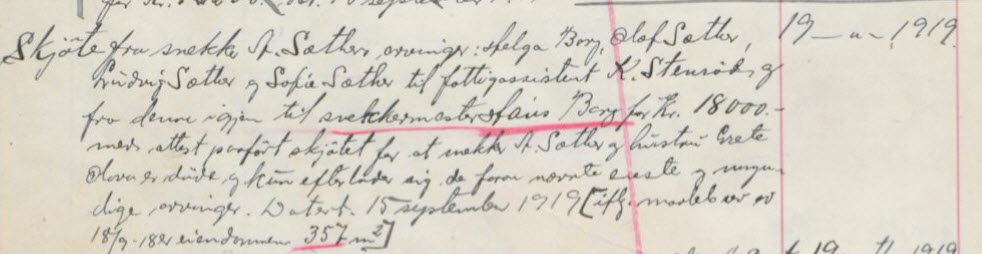 Skjøte fra snekker A. Sæthers arvinger: Helga Borg, Olaf Sæther, 19 — „ — 1919.
Ludvig Sæther og Sofie Sæther til fattigassistent K. Stensrød, og
fra denne igjen til snekkermester Hans Borg for Kr. 18000.-
med attest paaført skjøtet for at snekker A. Sæther og hustru Grete
Olava er døde og kun efterlader sig de foran nævnte eneste og myn-
dige arvinger. Datert. 15 september 1919 [ifg. maalebrev av
18/9-1882 eiendommen 357 m²]